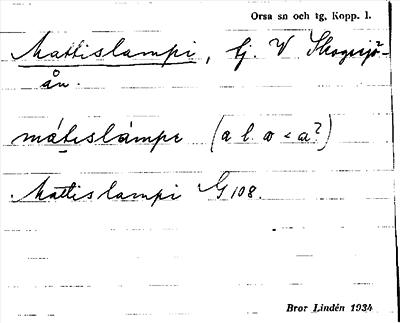 Orsa sn och tg, Kopp. l.
Mattislampi, tj. V Skogsjö-
ån.
mátislámpe (a l. a < a?)
Mattislampi G 108.
Bror Lindén 1934